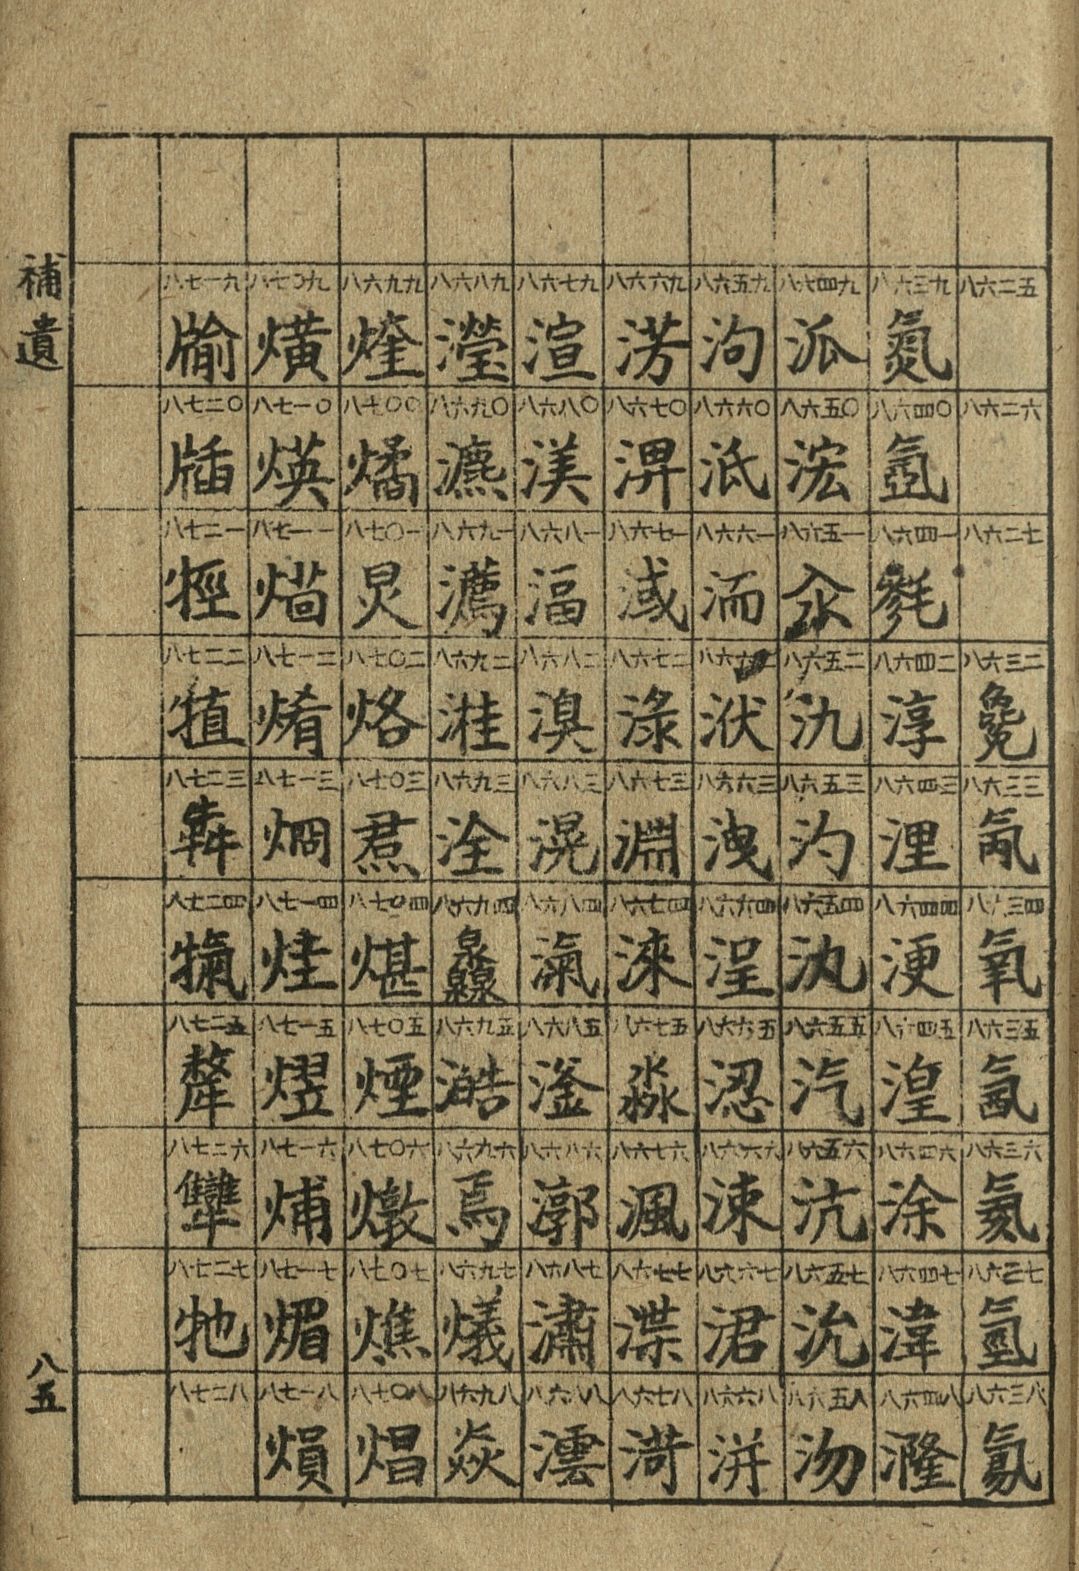 補遺
八五
八六二五
八六二六
八六二七
八六三二 毚
八六三三 氞
八六三四 氧
八六三五
八六三六 氨
八六三七 氫
八六三八 氦
八六三九 氮
八六四〇 氬
八六四一 毵
八六四二 淳
八六四三 浬
八六四四 浭
八六四五 湟
八六四六 涂
八六四七 湋
八六四八 漋
八六四九 泒
八六五〇 浤
八六五一 汆
八六五二 氿
八六五三 汋
八六五四 汍
八六五五 汽
八六五六 沆
八六五七 沇
八六五八 沕
八六五九 泃
八六六〇 泜
八六六一 洏
八六六二 洑
八六六三 洩
八六六四 浧
八六六五 涊
八六六六 涑
八六六七 涒
八六六八 洴
八六六九 淓
八六七〇 淠
八六七一 淢
八六七二 淥
八六七三 淵
八六七四 淶
八六七五 淼
八六七六 渢
八六七七 渫
八六七八 渮
八六七九 渲
八六八〇 渼
八六八一 湢
八六八二 湨
八六八三 滉
八六八四 滊
八六八五 滏
八六八六 漷
八六八七 潚
八六八八 澐
八六八九 瀅
八六九〇 瀌
八六九一 瀳
八六九二 溎
八六九三 洤
八六九四 灥
八六九五 澔
八六九六 焉
八六九七 燨
八六九八 焱
八六九九 燑
八七〇〇 燏
八七〇一 炅
八七〇二 烙
八七〇三 焄
八七〇四 煁
八七〇五 煙
八七〇六 燉
八七〇七 燋
八七〇八 焻
八七〇九 熿
八七一〇 煐
八七一一
八七一二 焴
八七一三 焹
八七一四 烓
八七一五 熤
八七一六 烳
八七一七 煝
八七一八 熉
八七一九 牏
八七二〇 牐
八七二一 牼
八七二二 犆
八七二三 犇
八七二四 犕
八七二五 犛
八七二六 犨
八七二七 牠
八七二八